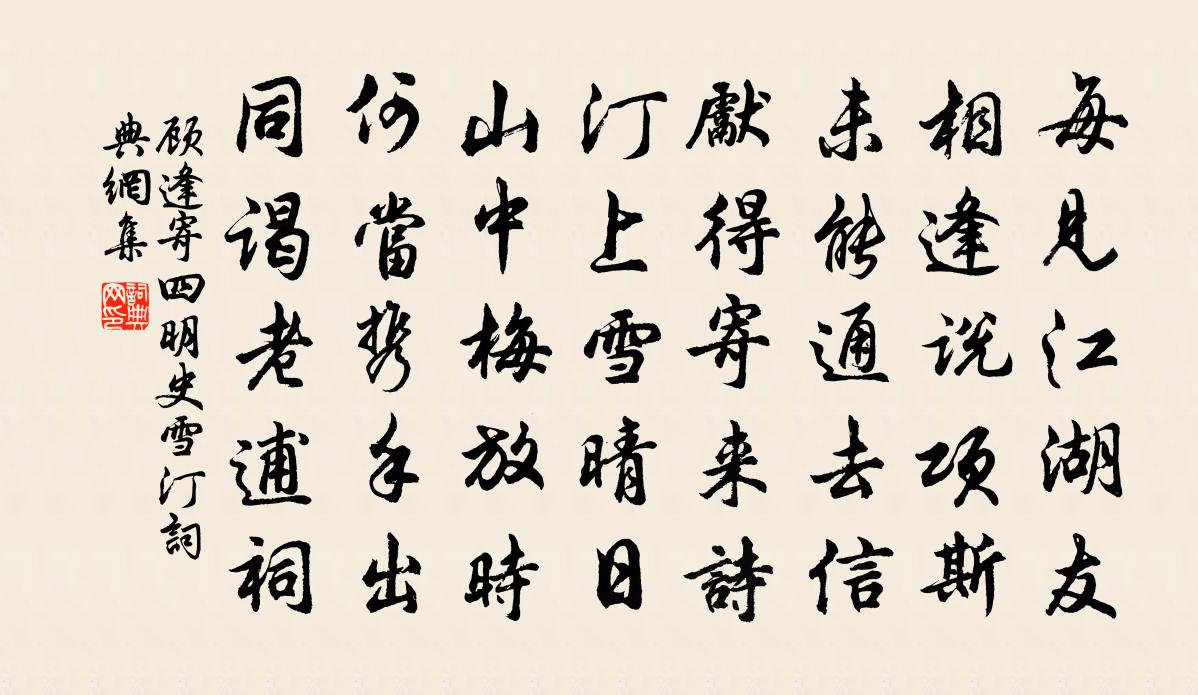 每見江湖友
相逢説項斯
未能通去信
獻得寄来詩
汀上雪晴日
山中梅放時
何當携手出
同谒老逋祠
顾逢寄四明史雪汀詞
典網集
詞典
网印